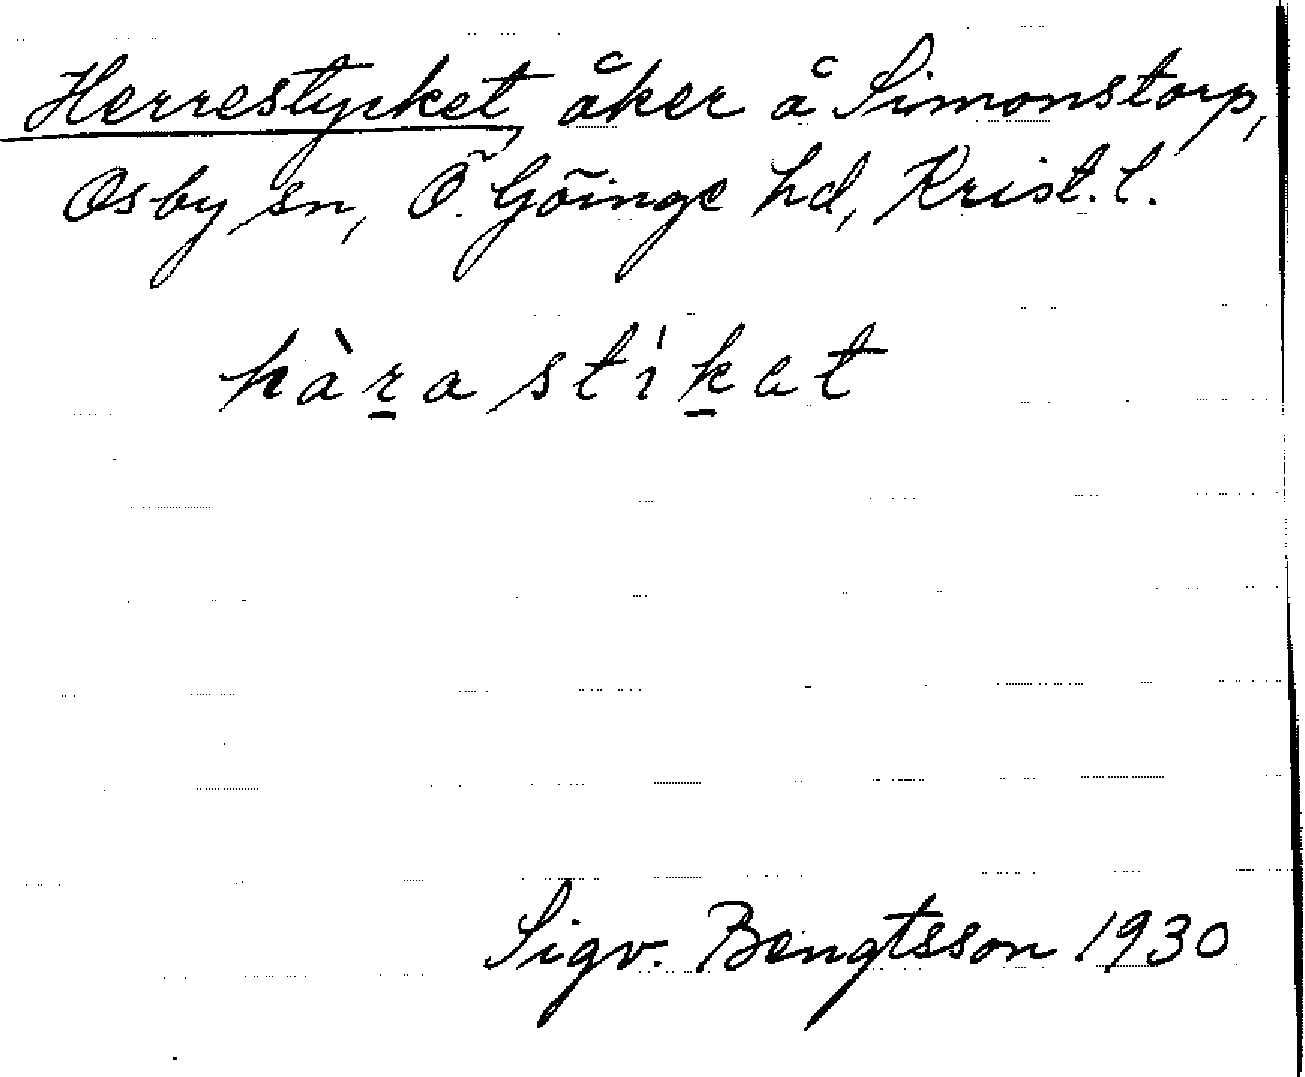 Herrestycket, åker å Simonstorp,
Osby sn, Ö. Göinge hd, Krist. l.
hàr̲a stı̍k̲at
Sigv. Bengtsson 1930